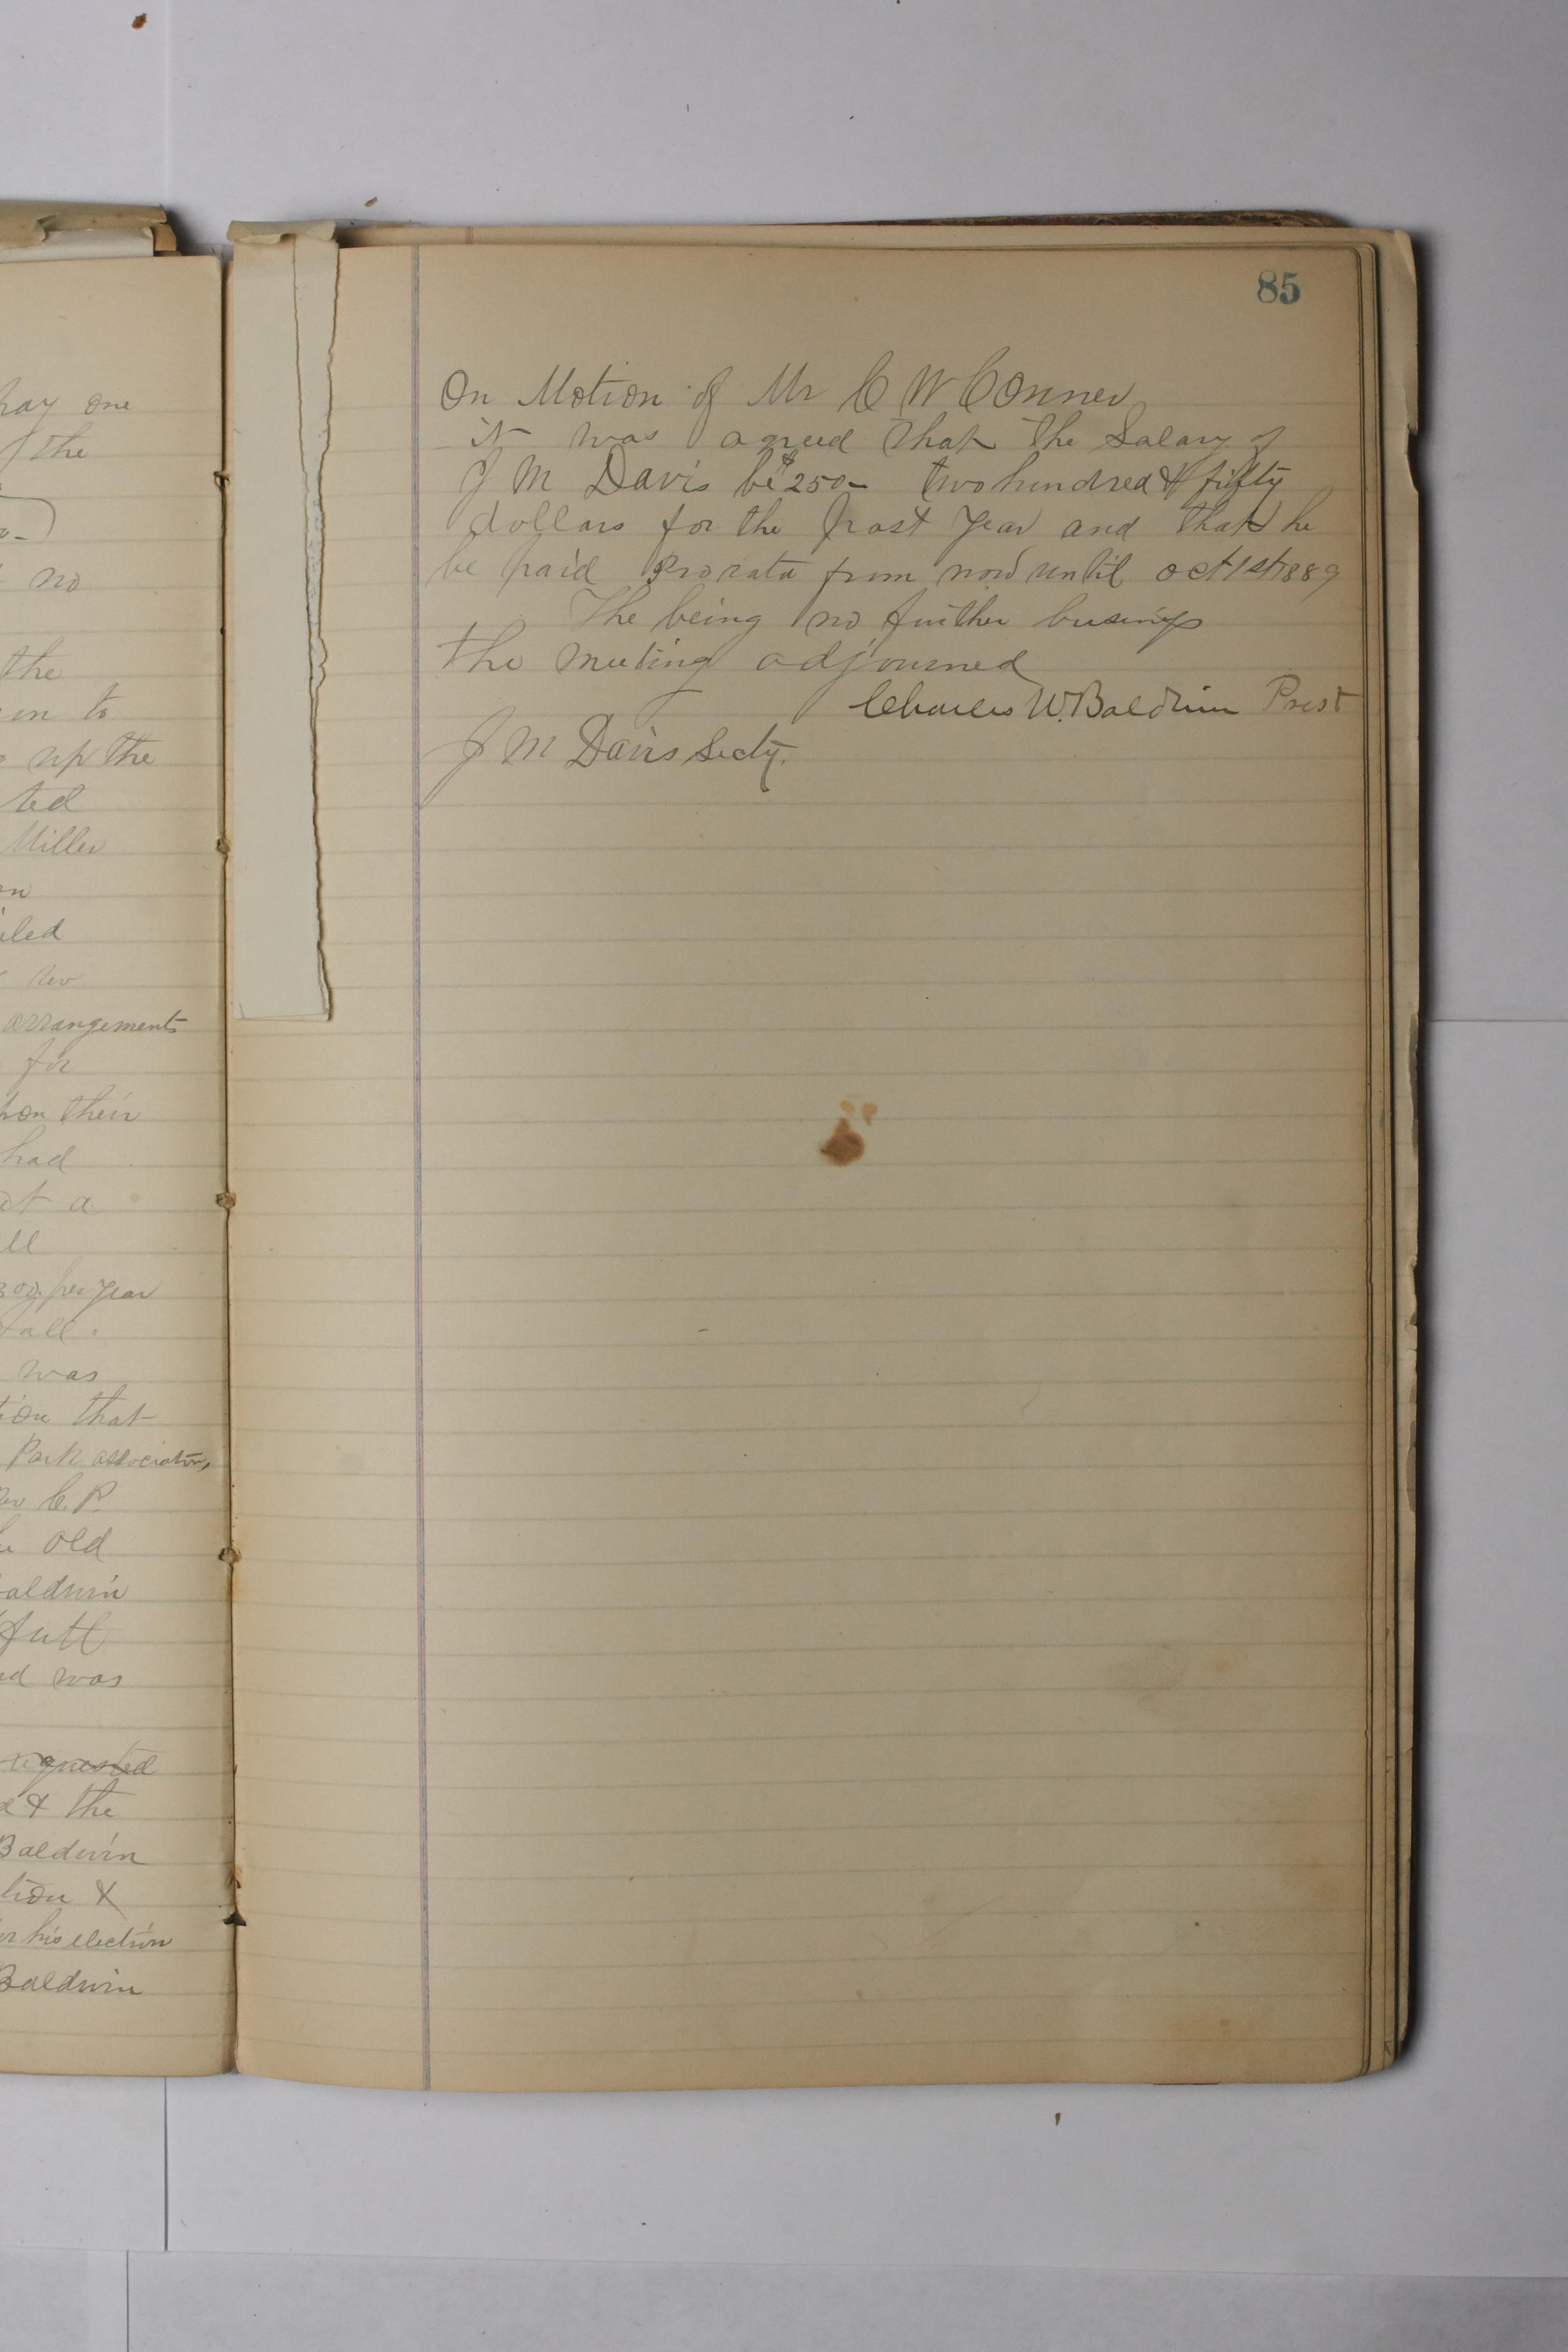 pay one
of the
no
the
en to
up the
ted
Miller
on
iled
arrangements
for
pon their
had
at a
ll
300. per year
fall.
was
tion that
Park association,
C.P.
old
Baldwin
Hull
ed was
requested
& the
Baldwin
tion &
his election
Baldwin
85
On Motion of Mr C W Conner
it was agreed that the Salary of
J M Davis be $250- two hundred & fifty
dollars for the past year and that he
be paid Prorata from now until Oct 1st 1889
The being no further business
the meeting adjourned
Charles W. Baldwin Prest
J M Davis Secty.